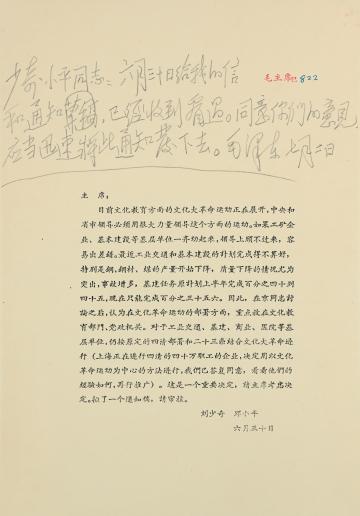 少奇、小平同志：六月三十日给我的信
毛主席 822
和通知草稿，已经收到看过。同意你们的意见
应当迅速将此通知发下去。毛泽东 七月二日
主席：
目前文化教育方面的文化大革命运动正在展开，中央和
省市领导必须用很大力量领导这个方面的运动。如果工矿企
业、基本建设等基层单位一齐动起来，领导上顾不过来，容
易出差错。最近工业交通和基本建设的计划完成得不算好，
特别是钢、钢材、煤的产量开始下降，质量下降的情况尤为
突出，事故增多，基建任务原计划上半年完成百分之四十到
四十五，现在只能完成百分之三十五六。因此，在京同志讨
论之后，认为在文化革命运动的部署方面，重点放在文化教
育部门、党政机关。对于工业交通、基建、商业、医院等基
层单位，仍按原定的四清部署和二十三条结合文化大革命进
行（上海正在进行四清的四十万职工的企业，决定用以文化
革命运动为中心的方法进行，我们已答复同意，看看他们的
经验如何，再行推广）。这是一个重要决定，请主席考虑决
定。拟了一个通知稿，请审核。
刘少奇 邓小平
六月三十日